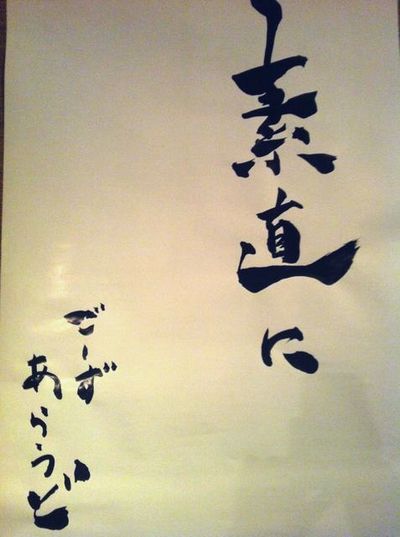 素直に
ごーず
あらうんど